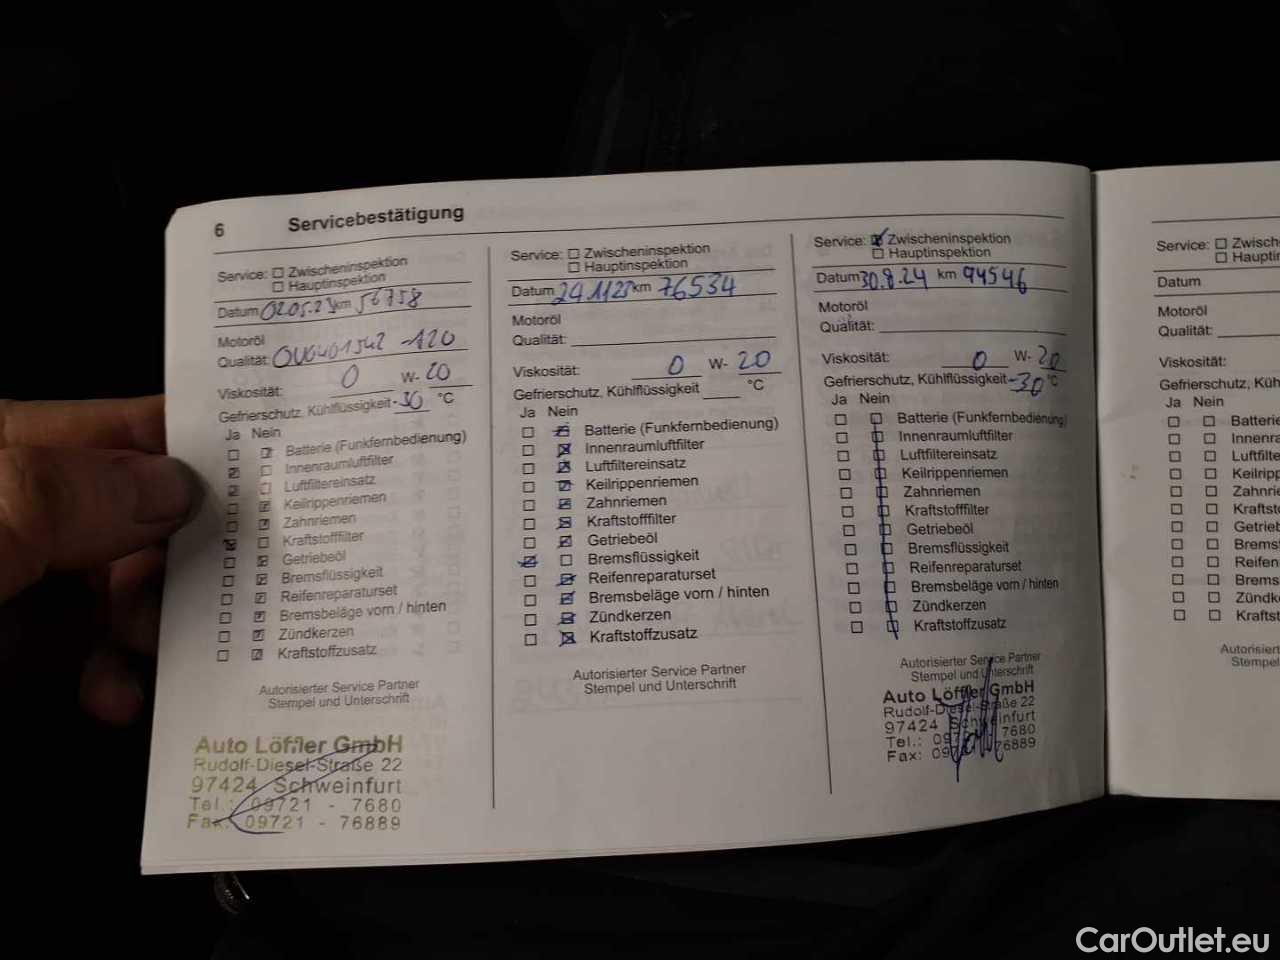 6 Servicebestätigung
Service: Zwischeninspektion
Hauptinspektion
Datum 02.05.23 km 56758
Motoröl
Qualität: OV0401547 -A20
Viskosität: 0 W- 20
Gefrierschutz, Kühlflüssigkeit -30 °C
Ja Nein
Batterie (Funkfernbedienung)
Innenraumluftfilter
Luftfiltereinsatz
Keilrippenriemen
Zahnriemen
Kraftstofffilter
Getriebeöl
Bremsflüssigkeit
Reifenreparaturset
Bremsbeläge vorn / hinten
Zündkerzen
Kraftstoffzusatz
Autorisierter Service Partner
Stempel und Unterschrift
Auto Löffler GmbH
Rudolf-Diesel-Straße 22
97424 Schweinfurt
Tel.: 09721 - 7680
Fax: 09721 - 76889
Service: Zwischeninspektion
Hauptinspektion
Datum 24.11.23 km 76534
Motoröl
Qualität:
Viskosität: 0 W- 20
Gefrierschutz, Kühlflüssigkeit °C
Ja Nein
Batterie (Funkfernbedienung)
Innenraumluftfilter
Luftfiltereinsatz
Keilrippenriemen
Zahnriemen
Kraftstofffilter
Getriebeöl
Bremsflüssigkeit
Reifenreparaturset
Bremsbeläge vorn / hinten
Zündkerzen
Kraftstoffzusatz
Autorisierter Service Partner
Stempel und Unterschrift
Service: Zwischeninspektion
Hauptinspektion
Datum 30.8.24 km 94546
Motoröl
Qualität:
Viskosität: 0 W- 20
Gefrierschutz, Kühlflüssigkeit -30 °C
Ja Nein
Batterie (Funkfernbedienung)
Innenraumluftfilter
Luftfiltereinsatz
Keilrippenriemen
Zahnriemen
Kraftstofffilter
Getriebeöl
Bremsflüssigkeit
Reifenreparaturset
Bremsbeläge vorn / hinten
Zündkerzen
Kraftstoffzusatz
Autorisierter Service Partner
Stempel und Unterschrift
Auto Löffler GmbH
Rudolf-Diesel-Straße 22
97424 Schweinfurt
Tel.: 097 7680
Fax: 09 76889
Service: Zwisch
Haupti
Datum
Motoröl
Qualität:
Viskosität:
Gefrierschutz, Küh
Ja Nein
Batterie
Innenra
Luftfilte
Keilripp
Zahnri
Kraftst
Getrieb
Brems
Reifen
Brems
Zündk
Krafts
Autorisiert
Stempel
CarOutlet.eu